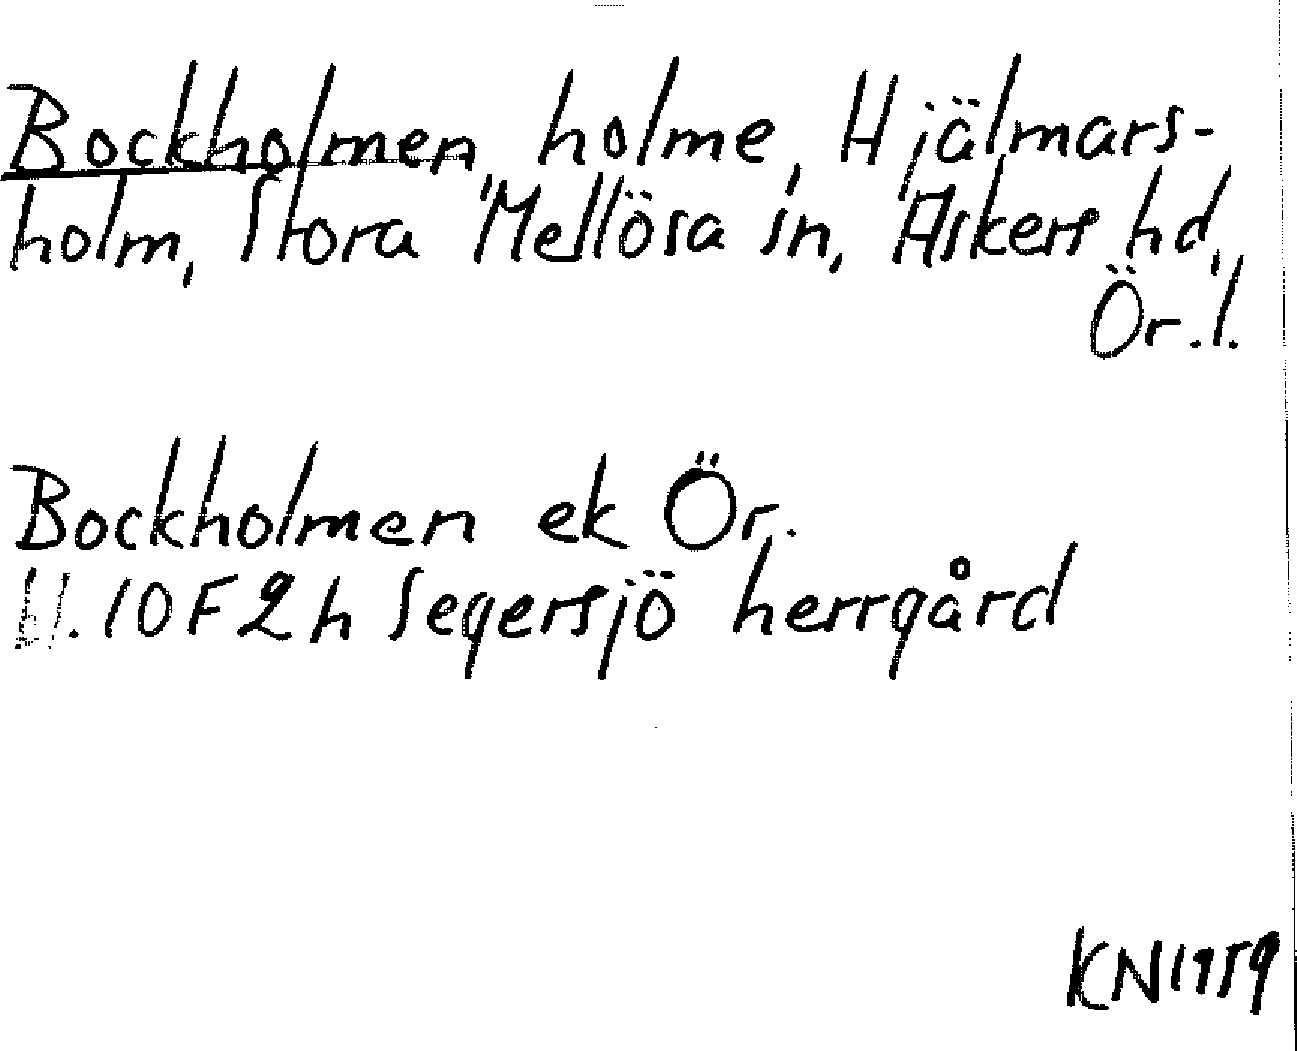 Bockholmen, holme, Hjälmars-
holm, Stora Mellösa sn, Askers hd,
Ör. l.
Bockholmen ek Ör.
10F2h Segersjö herrgård
KN1959